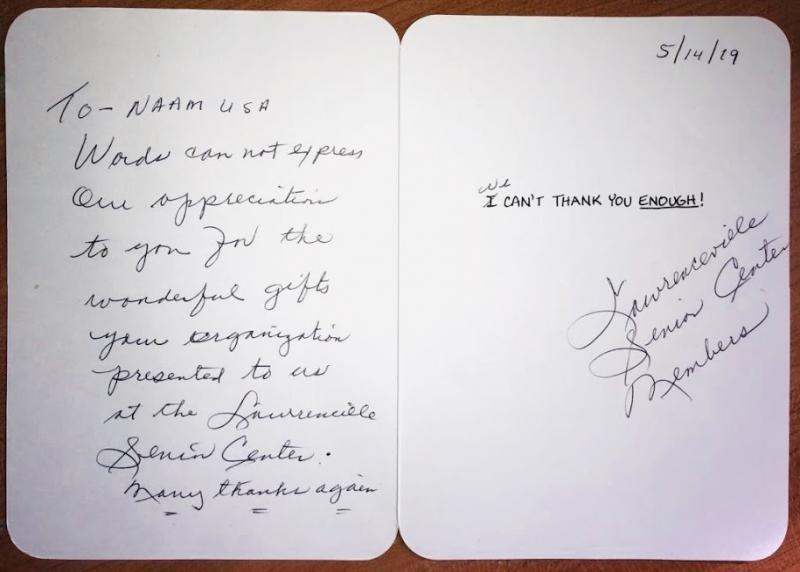 To - NAAM USA
Words can not express
Our appreciation
to you for the
wonderful gifts
your organization
presented to us
at the Lawrenceville
Senior Center.
Many thanks again
5/14/19
We
I CAN'T THANK YOU ENOUGH!
Lawrenceville
Senior Center
Members